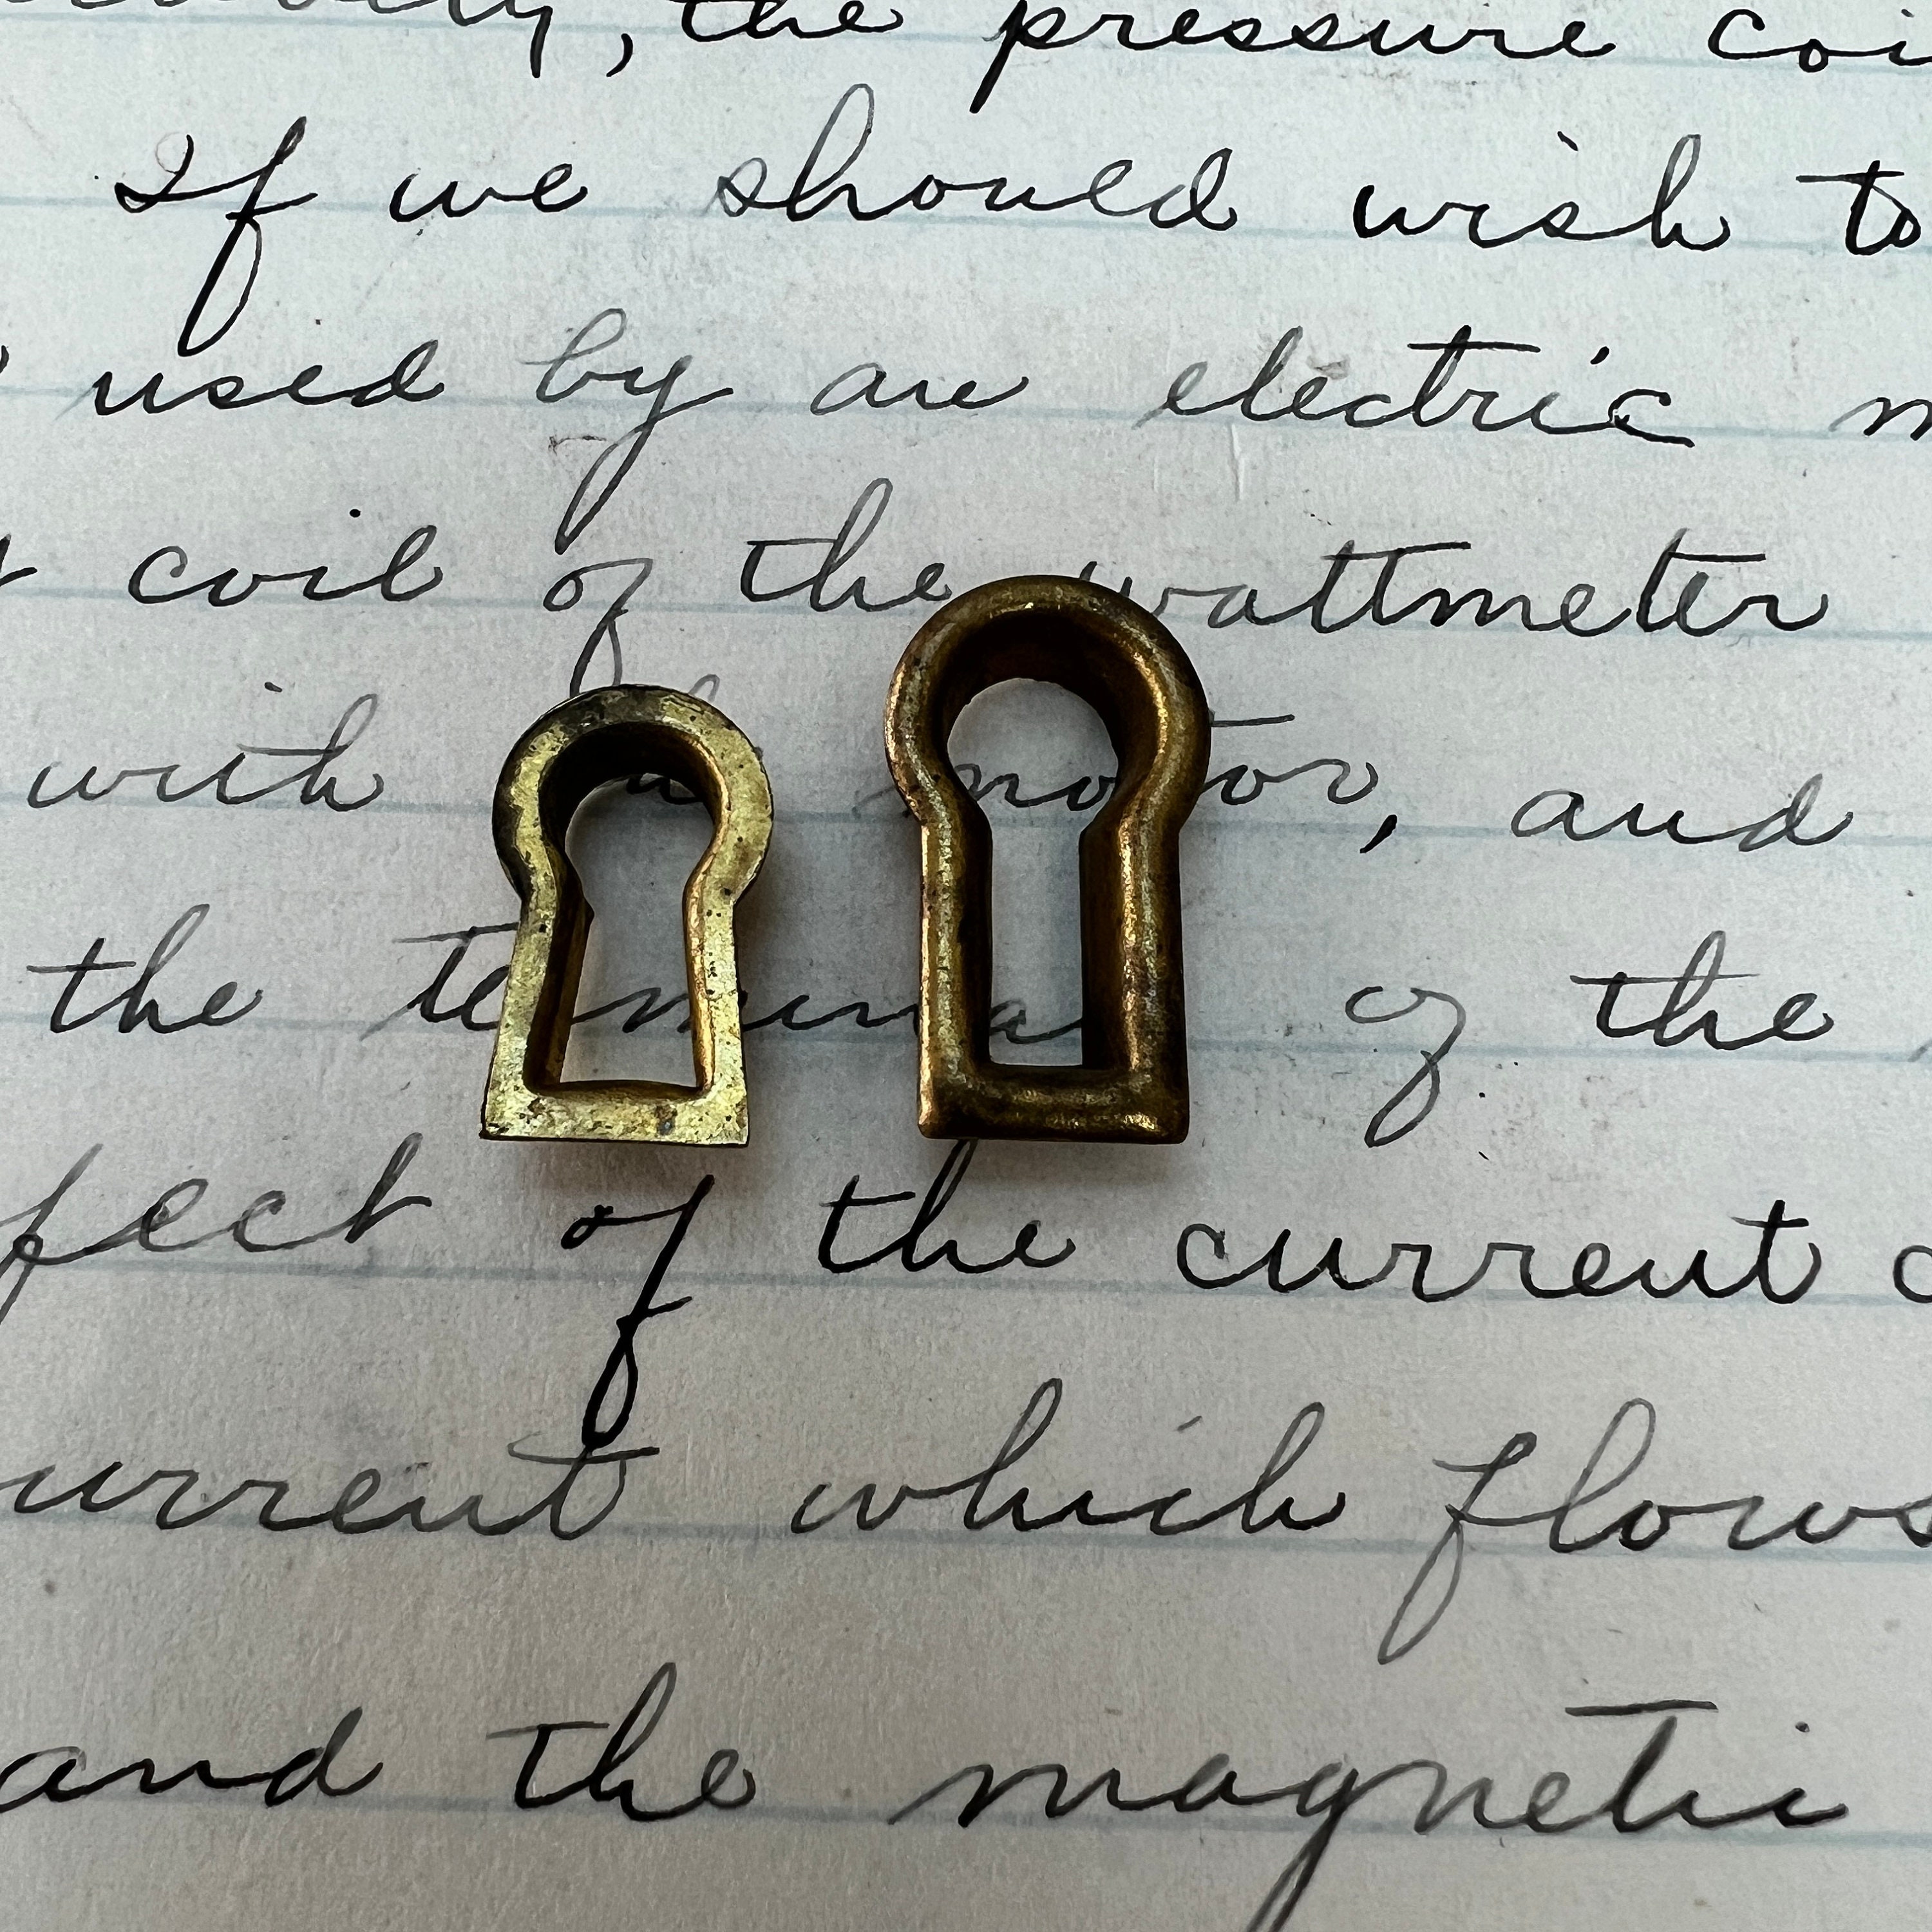 , the pressure coi
If we should wish to
used by an electric m
coil of the wattmeter
with motor, and
the terminal of the
fect of the current c
urrent which flows
and the magnetic